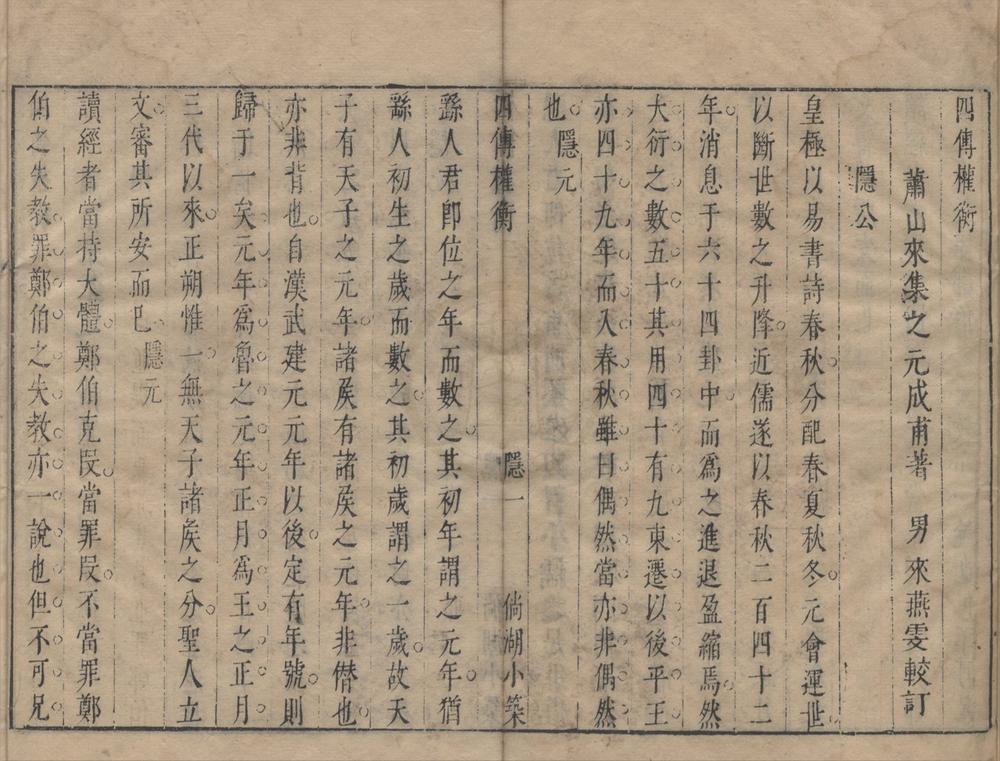 四傳權衡
蕭山來集之元成甫著　男來燕雯較訂
隱公
皇極以易書詩春秋分配春夏秋冬元會運世
以斷世數之升降近儒遂以春秋二百四十二
年消息于六十四卦中而爲之進退盈縮焉然
大衍之數五十其用四十有九東遷以後平王
亦四十九年而入春秋雖曰偶然當亦非偶然
也　隱元
四傳權衡　隱一　倘湖小築
繇人君卽位之年而數之其初年謂之元年猶
繇人初生之歲而數之其初歲謂之一歲故天
子有天子之元年諸矦有諸矦之元年非僣也
亦非背也自漢武建元元年以後定有年號則
歸于一矣元年爲魯之元年正月爲王之正月
三代以來正朔惟一無天子諸矦之分聖人立
文審其所安而已　隱元
讀經者當持大體鄭伯克叚當罪叚不當罪鄭
伯之失教罪鄭伯之失教亦一說也但不可兄